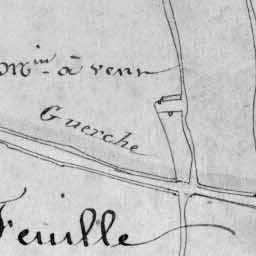 Min à vent
Guerche
Feuille